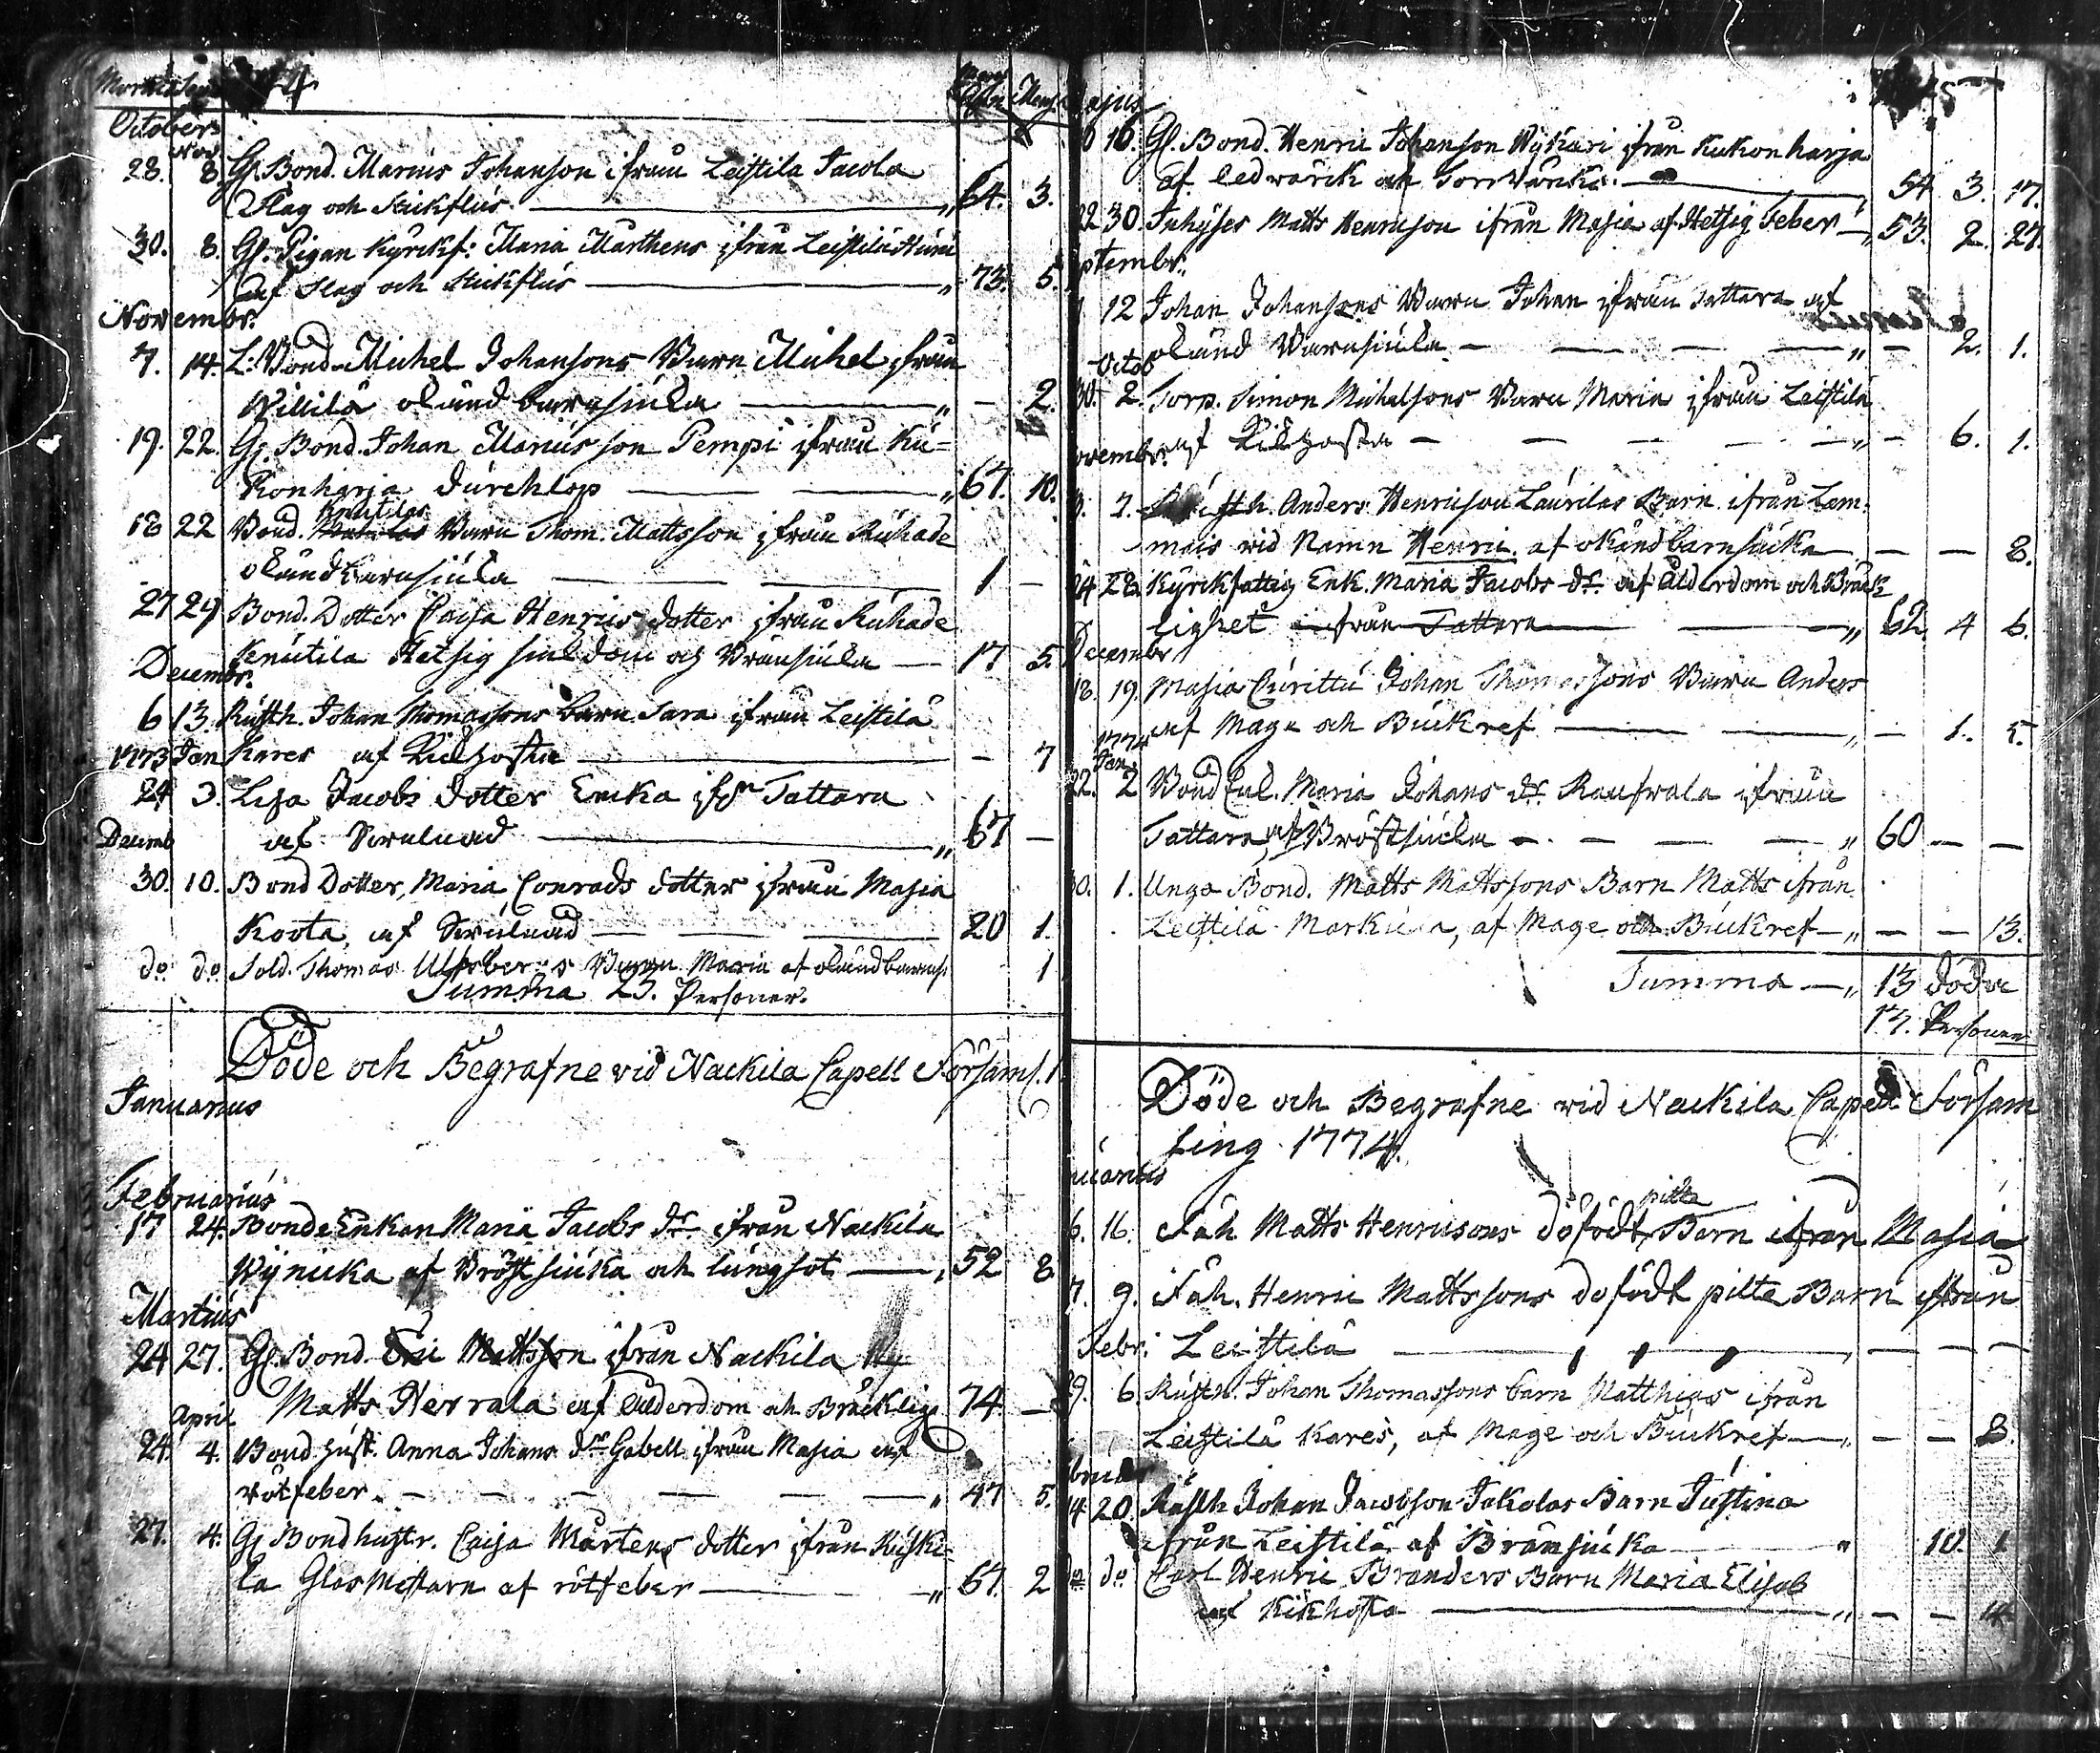 October
Nov
28. 8. Gl. Bond. Marcus Johanson ifrån Leistilä Jacola
Slag och Stickflús. 64. 3.
30. 8. Gl. Pigan Kyrikf: Maria Marthens ifrån Leistilä
af Slag och Stickflús 73. 5.
Novembr.
7. 14. L: Bond. Michel Johansons Barn Michel ifrån
Willilä okänd barnsiúka - 2.
19. 22. Gl. Bond. Johan Marcússon Pempi ifrån Kú=
konharja dúrchlop 67. 10.
Knútilas
18 22 Bond. Barn Thom. Mattsson ifrån Rúhade
okänd barnsiúka 1 -
27 29 Bond. Dotter Caisa Henrics dotter ifrån Rúhade
Knútila Hetsig siúkdom och Bränsiúka 17 5.
Decembr.
6 13. Rústh. Johan Thomassons barn Sara ifrån Leistilä
1773 Jan Kares af Kikhosta - 7
24 3. Lisa Jacobs dotter Encka ifrn Tattara
Decemb af Swulnad 67 -
30. 10. Bond Dotter, Maria Conrads dotter ifrån Masia
Koota, af Swúlnad 20 1.
do. do. Sold. Thomas Barn Maria af okänd barnsi 1
Summa 23. Personer.
Döde och Begrafne vid Nackila Capell Församl.
Januarius
Februariús
17 24. Bonde Enkan Maria Jacobs dr. ifrån Nackila
Wynicka af Bröstsiúka och lúngsot 52 8
Martiús
24 27. Gl. Bond. Eric Mattsson ifrån Nackila
Matts Herrala af ålderdom och Bräcklig. 74. -
April
24. 4. Bond. húst. Anna Johans dr Gabell ifrån Masia af
rötfeber. 47 5.
27. 4. Gl Bond hustr. Caisa Mårtens dotter ifrån Kúski=
la Glas Mettarn af rötfeber 67. 2
ajus
16. Gl. Bond. Henric Johanson Nykäri ifrån Kukonharja
af ledwärck och Torrwärck. 54 3. 17.
22 30. Inhyses Matts Henricson ifrån Masia af Hetsig Feber 53. 2. 27.
ptembr.
12 Johan Johansons Barn Johan ifrån Tattara af
okänd Barnsiúka - 2. 1.
Octob
30. 2. Torp. Simon Michelsons Barn Maria ifrån Leistilä
af Kikhosta - 6. 1.
ovembr.
7. Rústh. Anders Henricson Laúrilas Barn ifrån Lam=
mais vid Namn Henric af okänd barnsiúka - - 8.
24 28. Kyrickfattig Enk. Maria Jacobs dr. af ålderdom och Bräck
lighet ifrån Tattara 62. 4 6.
Decembr
18. 19. Masia Cúrittú Johan Thomassons Barn Anders
af Mage och Búckref - 1. 5.
1774
Jan.
22. 2 Bond Enk. Maria Johans dr. Raufwala ifrån
Tattara, af Bröstsiúka 60 - -
30. 1. Unga Bond. Matts Mattssons Barn Matts ifrån
Leistilä Markúla, af Mage och Búckref - - 13.
Summa 13 döde
17. Personer
Döde och Begrafne vid Nackila Capell Försam
ling 1774.
nuarius
6. 16. Matts Henricsons dödfödt pilte Barn ifrån Masia
7. 9. Henric Mattssons dödfödt pilte Barn ifrån
Febr. Leistilä - - -
29. 6. Rústh. Johan Thomassons barn Matthias ifrån
Leistilä Kares, af Mage och Búckref - - 8.
bruar
14 20. Rústh Johan Jacobson Jakolas Barn Jústina
ifrån Leistilä af Bränsiúka 10. 1
do do. Carl Henric Branders Barn Maria Elisab
af Kikhosta - - 4.